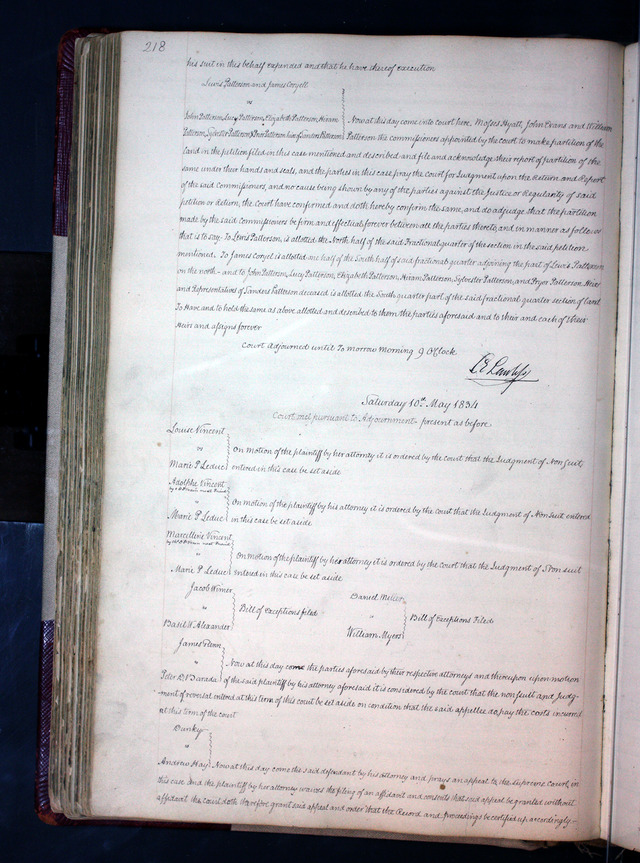 218
his suit in this behalf expended and that he have thereof execution
Lewis Patterson and James Coryell
vs
John Patterson, Lucy Patterson, Elizabeth Patterson, Hiram
Patterson, Sylvester Patterson & Pryor Patterson heirs of Sanders Patterson
Now at this day come into court here Moses Hyatt, John Evans and William
Patterson the commissioners appointed by the court to make partition of the
land in the petition filed in this case mentioned and described and file and acknowledge their report of partition of the
same under their hands and seals, and the parties in this case pray the court for Judgment upon the Return and Report
of the said Commissioners, and no cause being shown by any of the parties against the Justice or Regularity of said
petition or return, the Court have confirmed and doth hereby confirm the same, and do adjudge that the partition
made by the said commissioners be firm and effectual forever between all the parties thereto, and in manner as follows
that is to say. To Lewis Patterson, is allotted the North half of the said Fractional quarter of the section in the said petition
mentioned. To James Coryel is allotted one half of the South half of said fractional quarter adjoining the part of Lewis Patterson
on the north - and to John Patterson, Lucy Patterson, Elizabeth Patterson, Hiram Patterson, Sylvester Patterson, and Pryor Patterson Heirs
and Representatives of Sanders Patterson deceased is allotted the South quarter part of the said fractional quarter section of land
To Have and to hold the same as above allotted and described to them the parties aforesaid and to their and each of their
Heirs and assigns forever
Court adjourned until To morrow Morning 9 O'Clock
L E Lawless
Saturday 10th May 1834
Court met pursuant to Adjournment - present as before
Louise Vincent
vs
Marie P Leduc
On motion of the plaintiff by her attorney it is ordered by the court that the Judgment of Non Suit
entered in this case be set aside
Adolphe Vincent
by next friend
"
Marie P. Leduc
On motion of the plaintiff by his attorney it is ordered by the court that the Judgment of Non Suit entered
in this case be set aside
Marcelline Vincent
by next friend
"
Marie P Leduc
On motion of the plaintiff by her attorney it is ordered by the court that the Judgment of Non suit
entered in this case be set aside
Jacob Wimer
"
Basil W. Alexander
Bill of Exceptions filed
Daniel Miller
"
William Myers
Bill of Exceptions Filed
James
"
Peter A Barada
Now at this day come the parties aforesaid by their respective attorneys and thereupon upon motion
of the said plaintiff by his attorney aforesaid it is considered by the court that the nonsuit and Judg-
ment of entered at this term of this court be set aside on condition that the said appellee do pay the costs incurred
at this term of the court
Dunky
"
Andrew Hay
Now at this day come the said defendant by his attorney and prays an appeal to the Supreme Court, in
this case and the plaintiff by her attorney waives the filing of an affidavit and consents that said appeal be granted without
affidavit the court doth therefore grant said appeal and order that the Record and proceedings be certified up accordingly.-